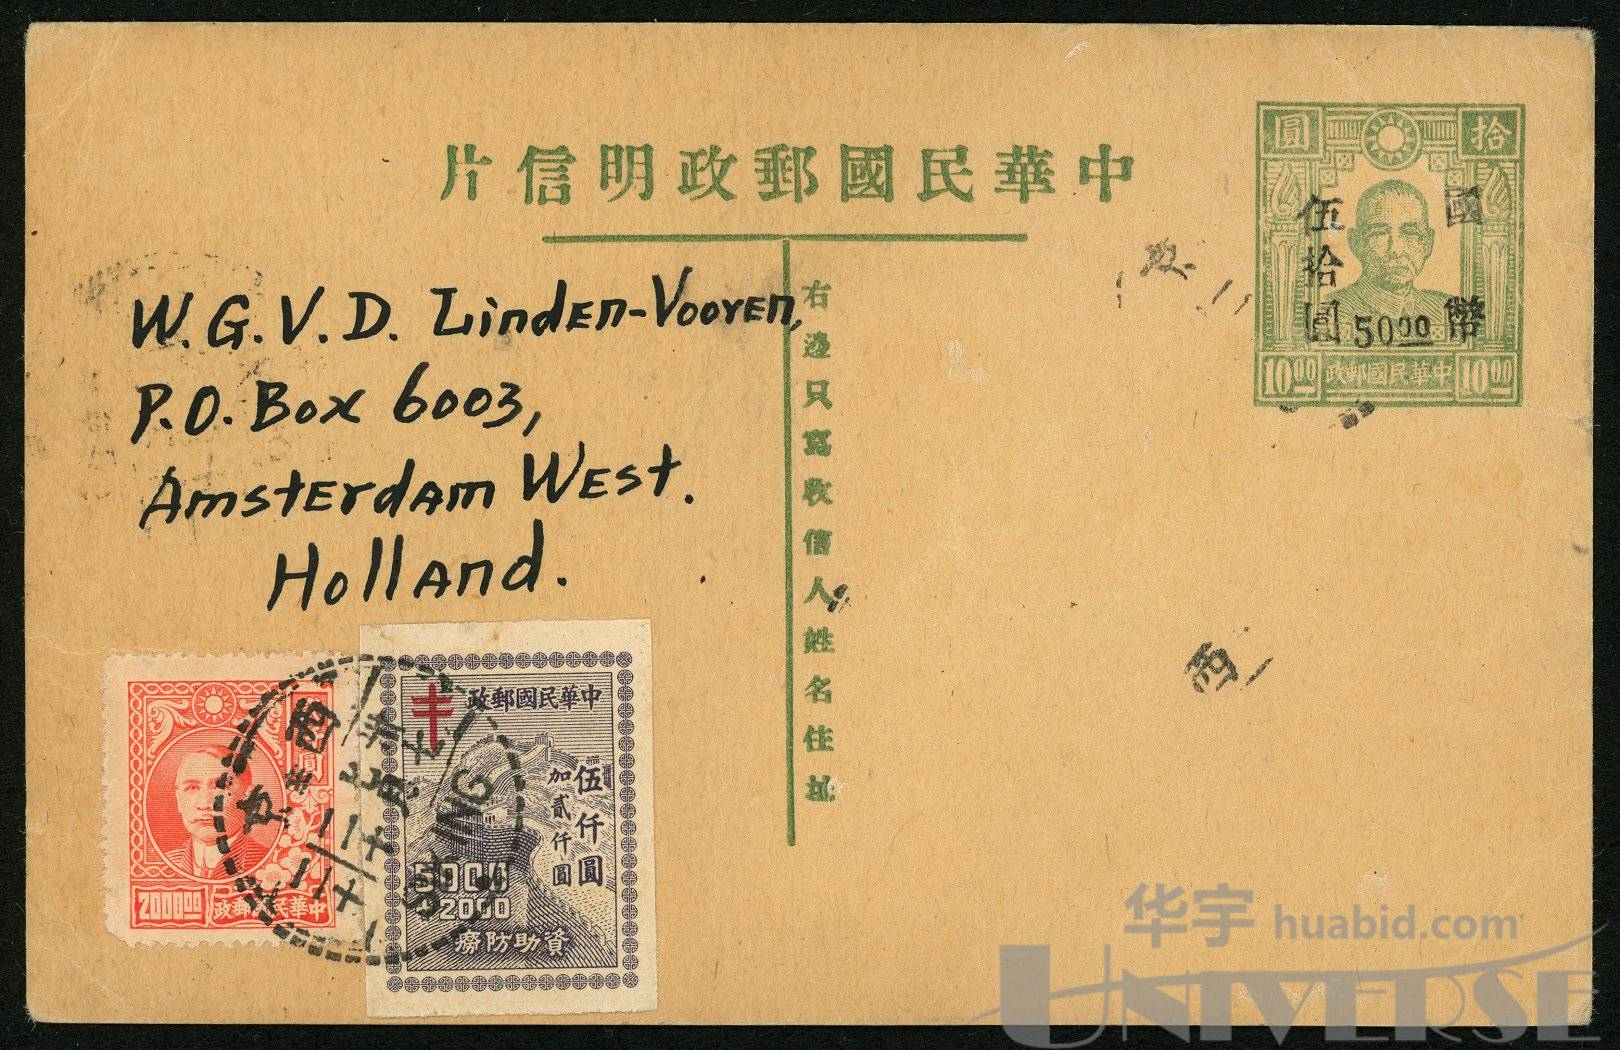 中華民國郵政明信片
拾圓
國幣
伍拾圓
5000
10.00 中華民國郵政 10.00
右邊只寫收信人姓名住址
W.G.V.D. Linden-Vooren,
P.O. Box 6003,
Amsterdam West.
Holland.
圓
2000.00 中華民國郵政
中華民國郵政
伍仟圓
加貳仟圓
5000
+2000
資助防癆
西
华宇 huabid.com
UNIVERSE